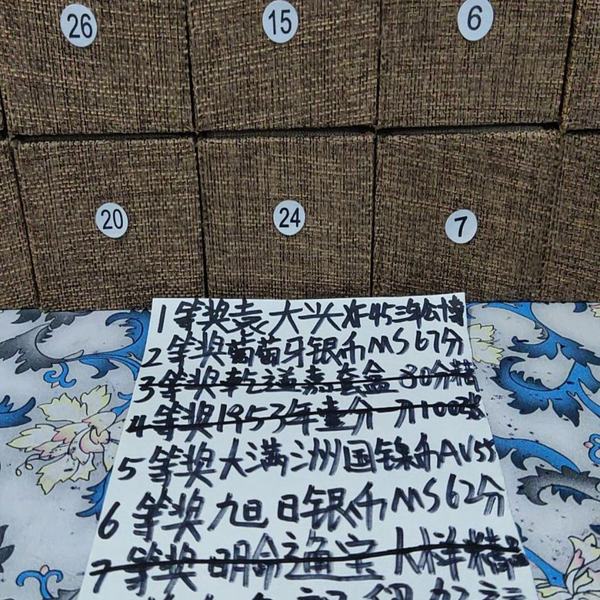 26 15 6
20 24 7
1等奖袁大头XF45三年公博
2等奖葡萄牙银币MS67分
3等奖乾道嘉套盒80分精
4等奖1953年壹分 刀100张
5等奖大满洲国镍币AU55
6等奖旭日银币MS62分
7等奖明命通宝 大样精品